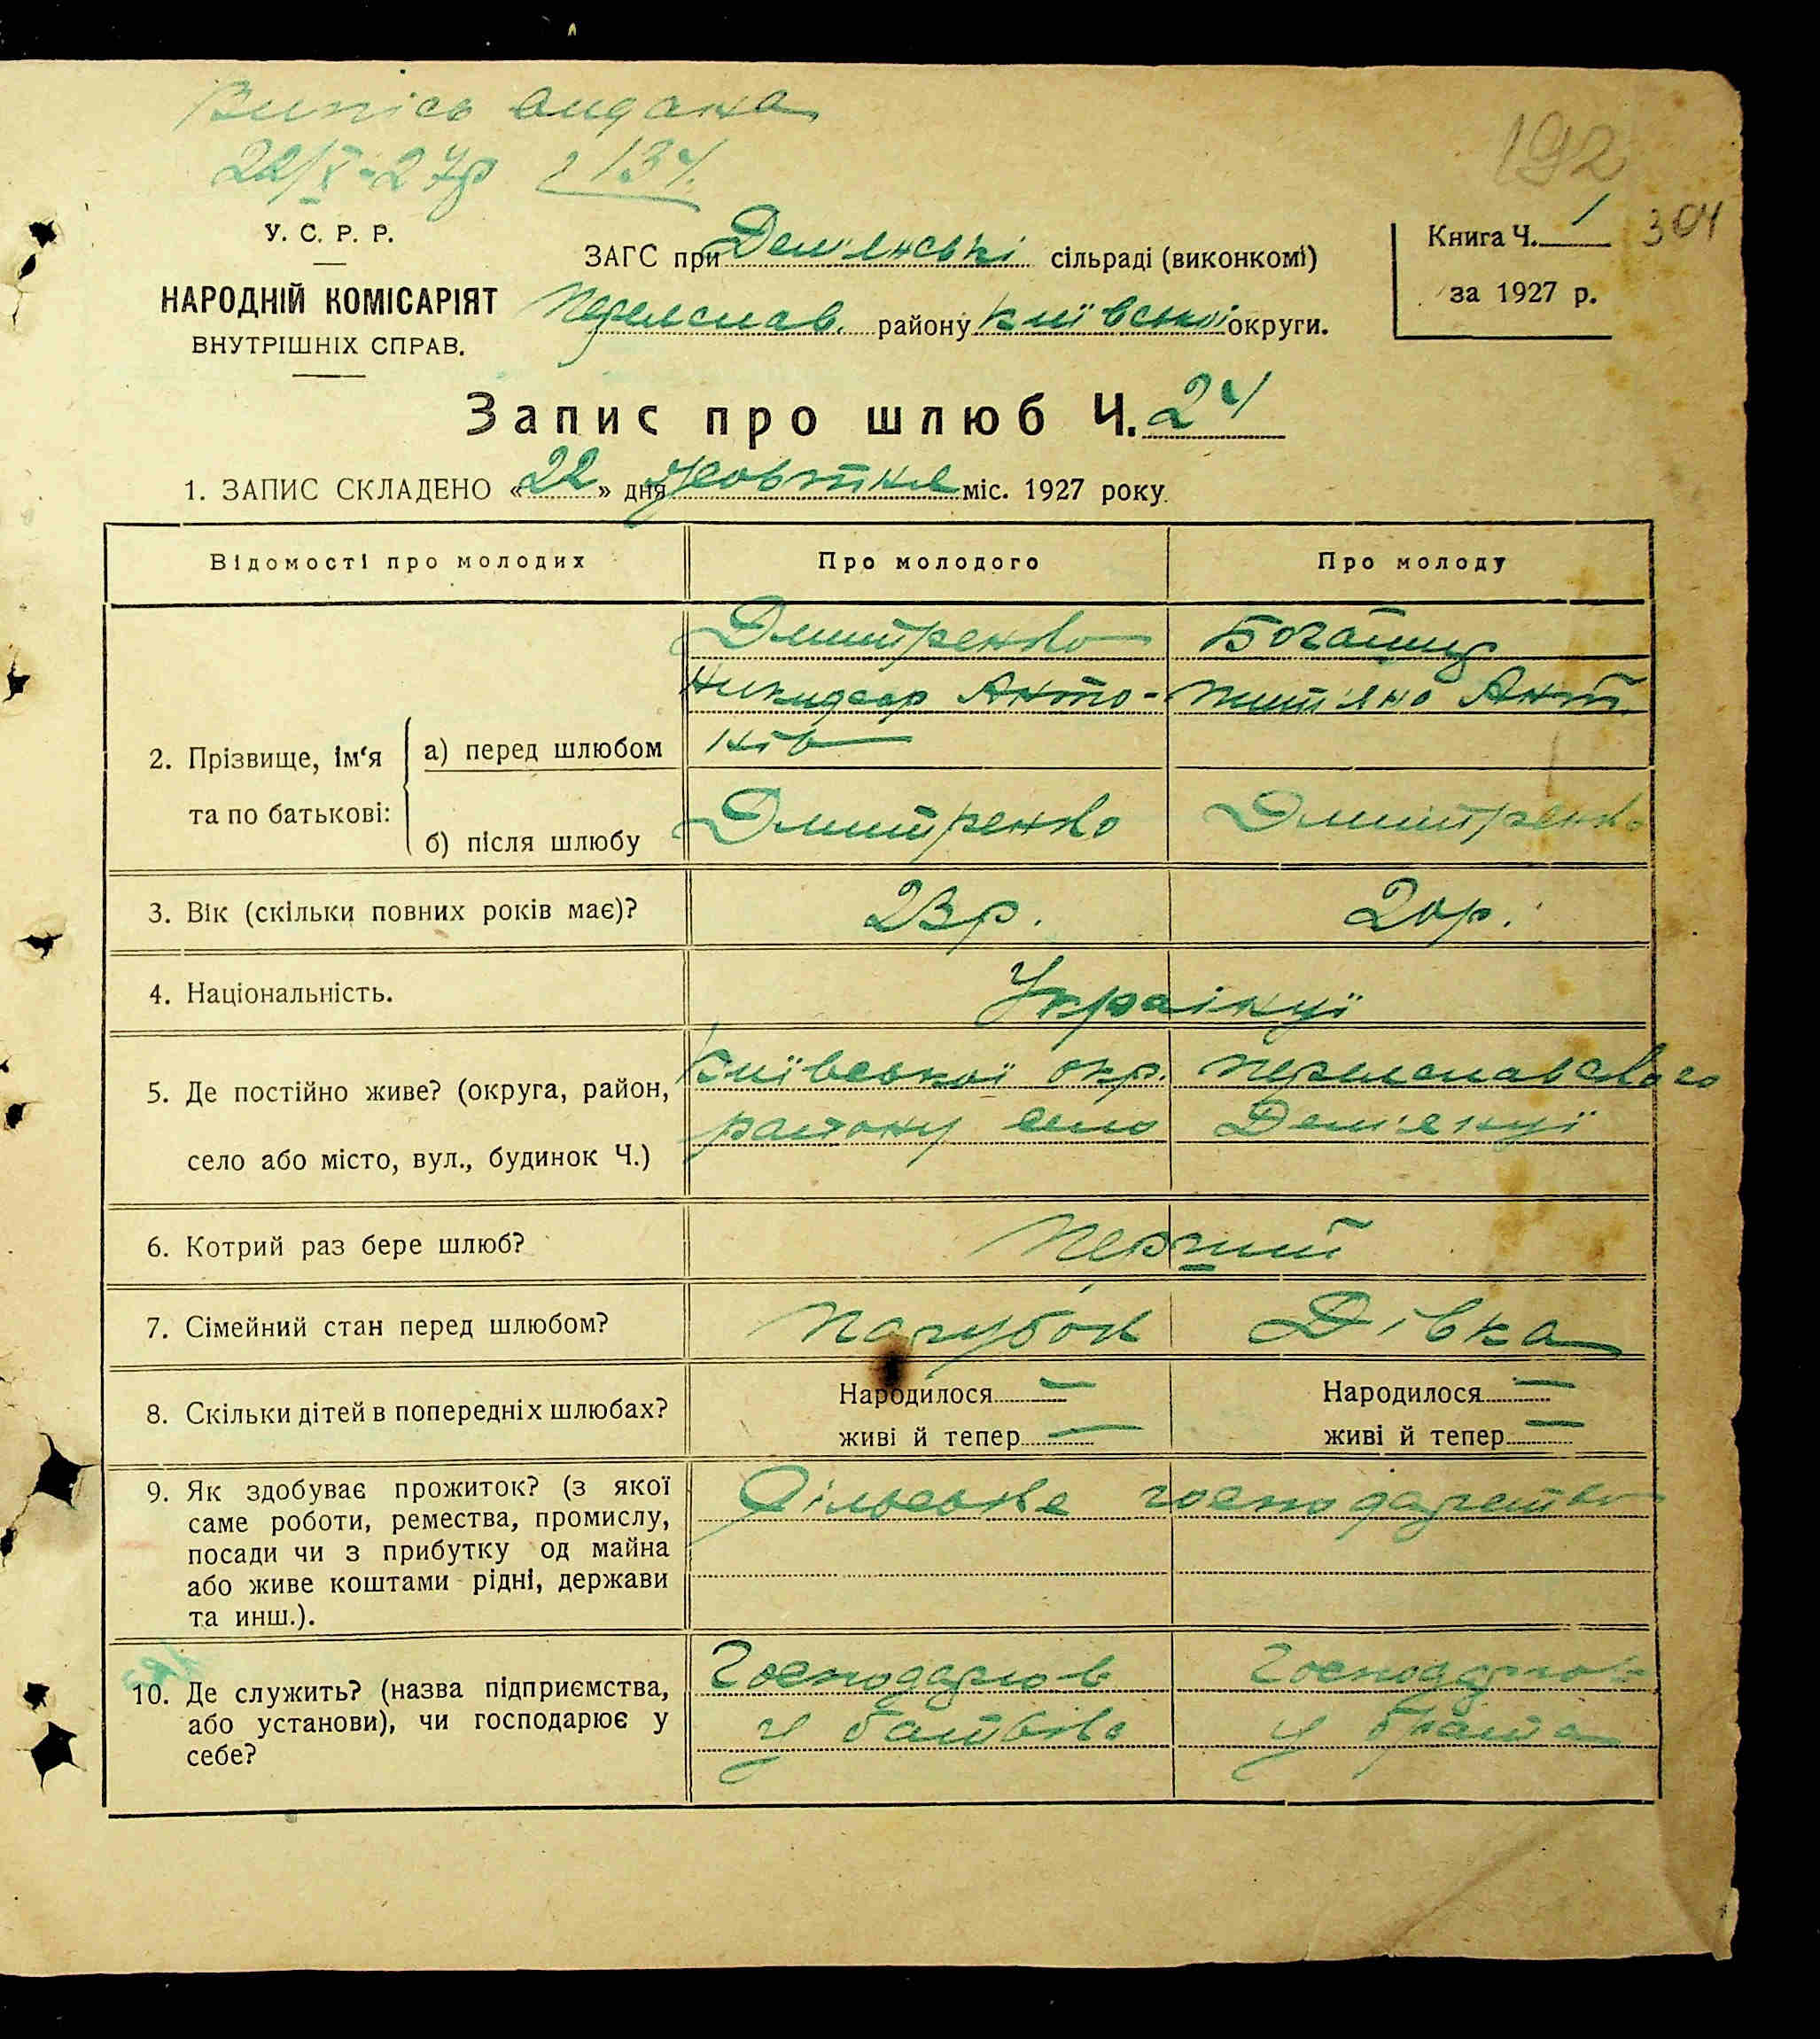 Випісь видана
22/X-27р 2 134.
192
304
У. С. Р. Р.
НАРОДНІЙ КОМІСАРІЯТ
ВНУТРІШНІХ СПРАВ.
ЗАГС при Дем'янські сільраді (виконкомі)
Переяслав. району Київської округи.
Книга Ч. 1
за 1927 р.
Запис про шлюб Ч. 24
1. ЗАПИС СКЛАДЕНО «22» дня Жовтня міс. 1927 року.
Відомості про молодих
Про молодого
Про молоду
2. Прізвище, ім'я та по батькові:
а) перед шлюбом
Дмитренко
Никидоор Анто-
нів
Тит'яно Ант.
б) після шлюбу
Дмитренко
Дмитренко
3. Вік (скільки повних років має)?
23р.
20р.
4. Національність.
Українці
5. Де постійно живе? (округа, район,
село або місто, вул., будинок Ч.)
Київської окр. Переяславського
району село Дем'янці
6. Котрий раз бере шлюб?
Перший
7. Сімейний стан перед шлюбом?
Парубок
Дівка
8. Скільки дітей в попередніх шлюбах?
Народилося —
живі й тепер —
Народилося —
живі й тепер —
9. Як здобуває прожиток? (з якої
саме роботи, ремества, промислу,
посади чи з прибутку од майна
або живе коштами рідні, держави
та инш.).
Сільське господарство
10. Де служить? (назва підприємства,
або установи), чи господарює у
себе?
Господарюв
у батька
Господарюв
у брата